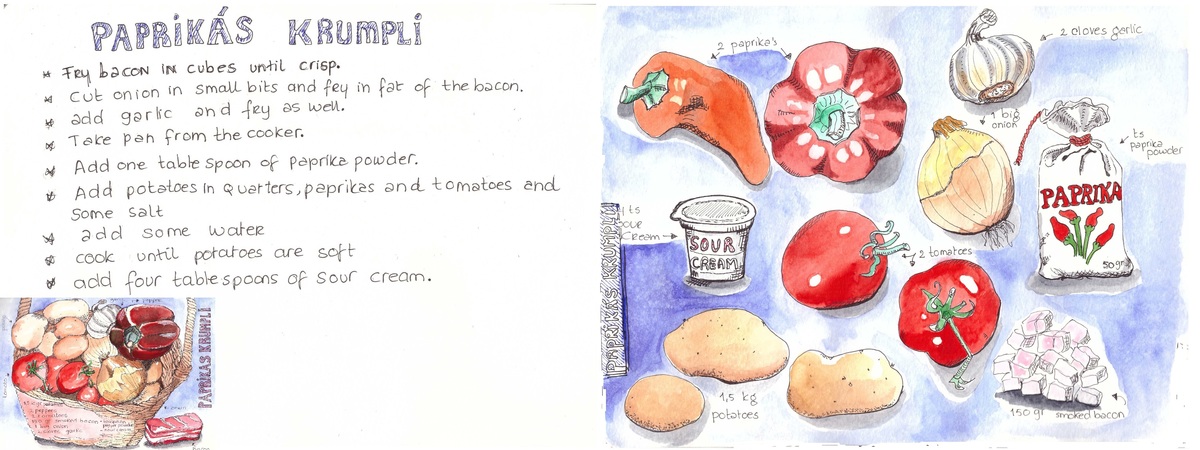 PAPRIKÁS KRUMPLI
Fry bacon in cubes until crisp.
Cut onion in small bits and fry in fat of the bacon.
add garlic and fry as well.
Take pan from the cooker.
Add one table spoon of paprika powder.
Add potatoes in quarters, paprikas and tomatoes and
some salt
add some water
cook until potatoes are soft
add four tablespoons of sour cream.
PAPRIKÁS KRUMPLI
2 paprika's
2 cloves garlic
1 big
onion
ts
paprika
powder
PAPRIKA
50gr
ts
sour
cream
SOUR
CREAM
2 tomatoes
PAPRIKÁS KRUMPLI
1,5 kg
potatoes
150 gr smoked bacon